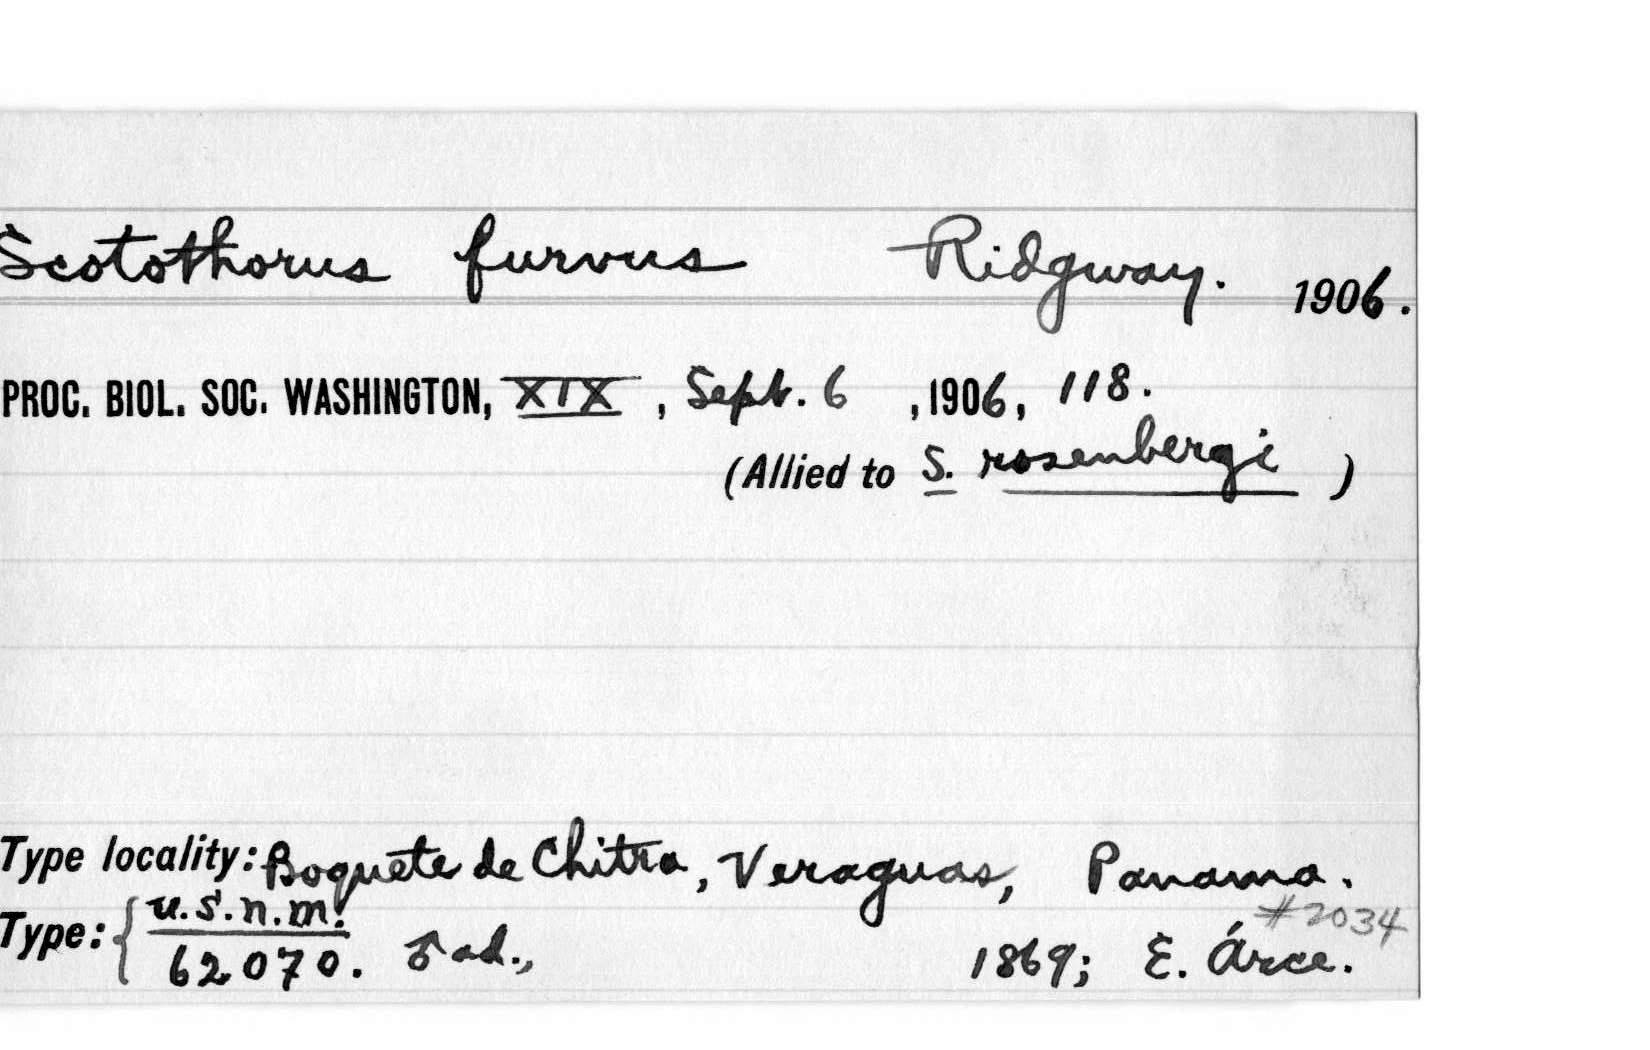 Scotothorus furvus Ridgway. 1906.
PROC. BIOL. SOC. WASHINGTON, XIX, Sept. 6, 1906, 118.
(Allied to S. rosenbergi)
Type locality: Boquete de Chitra, Veraguas, Panama.
#2034
Type: { U.S.N.M.
62070. ♂ ad., 1869; E. Árce.